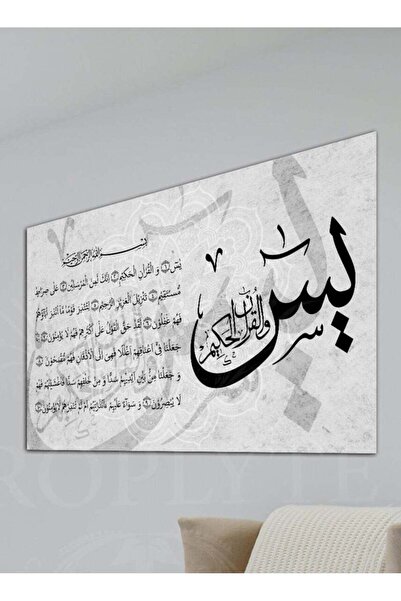 يس
والقرآن الحكيم
بسم الله الرحمن الرحيم
يس ۝ و القرآن الحكيم ۝ انك لمن المرسلين ۝ على صراط
مستقيم ۝ تنزيل العزيز الرحيم ۝ لتنذر قوما ما انذر اباؤهم
فهم غافلون ۝ لقد حق القول على اكثرهم فهم لا يؤمنون ۝ انا
جعلنا في اعناقهم اغلالا فهي الى الاذقان فهم مقمحون ۝
و جعلنا من بين ايديهم سدا و من خلفهم سدا فاغشيناهم فهم
لا يبصرون ۝ و سواء عليهم ءانذرتهم ام لم تنذرهم لا يؤمنون ۝
ROPLYTE